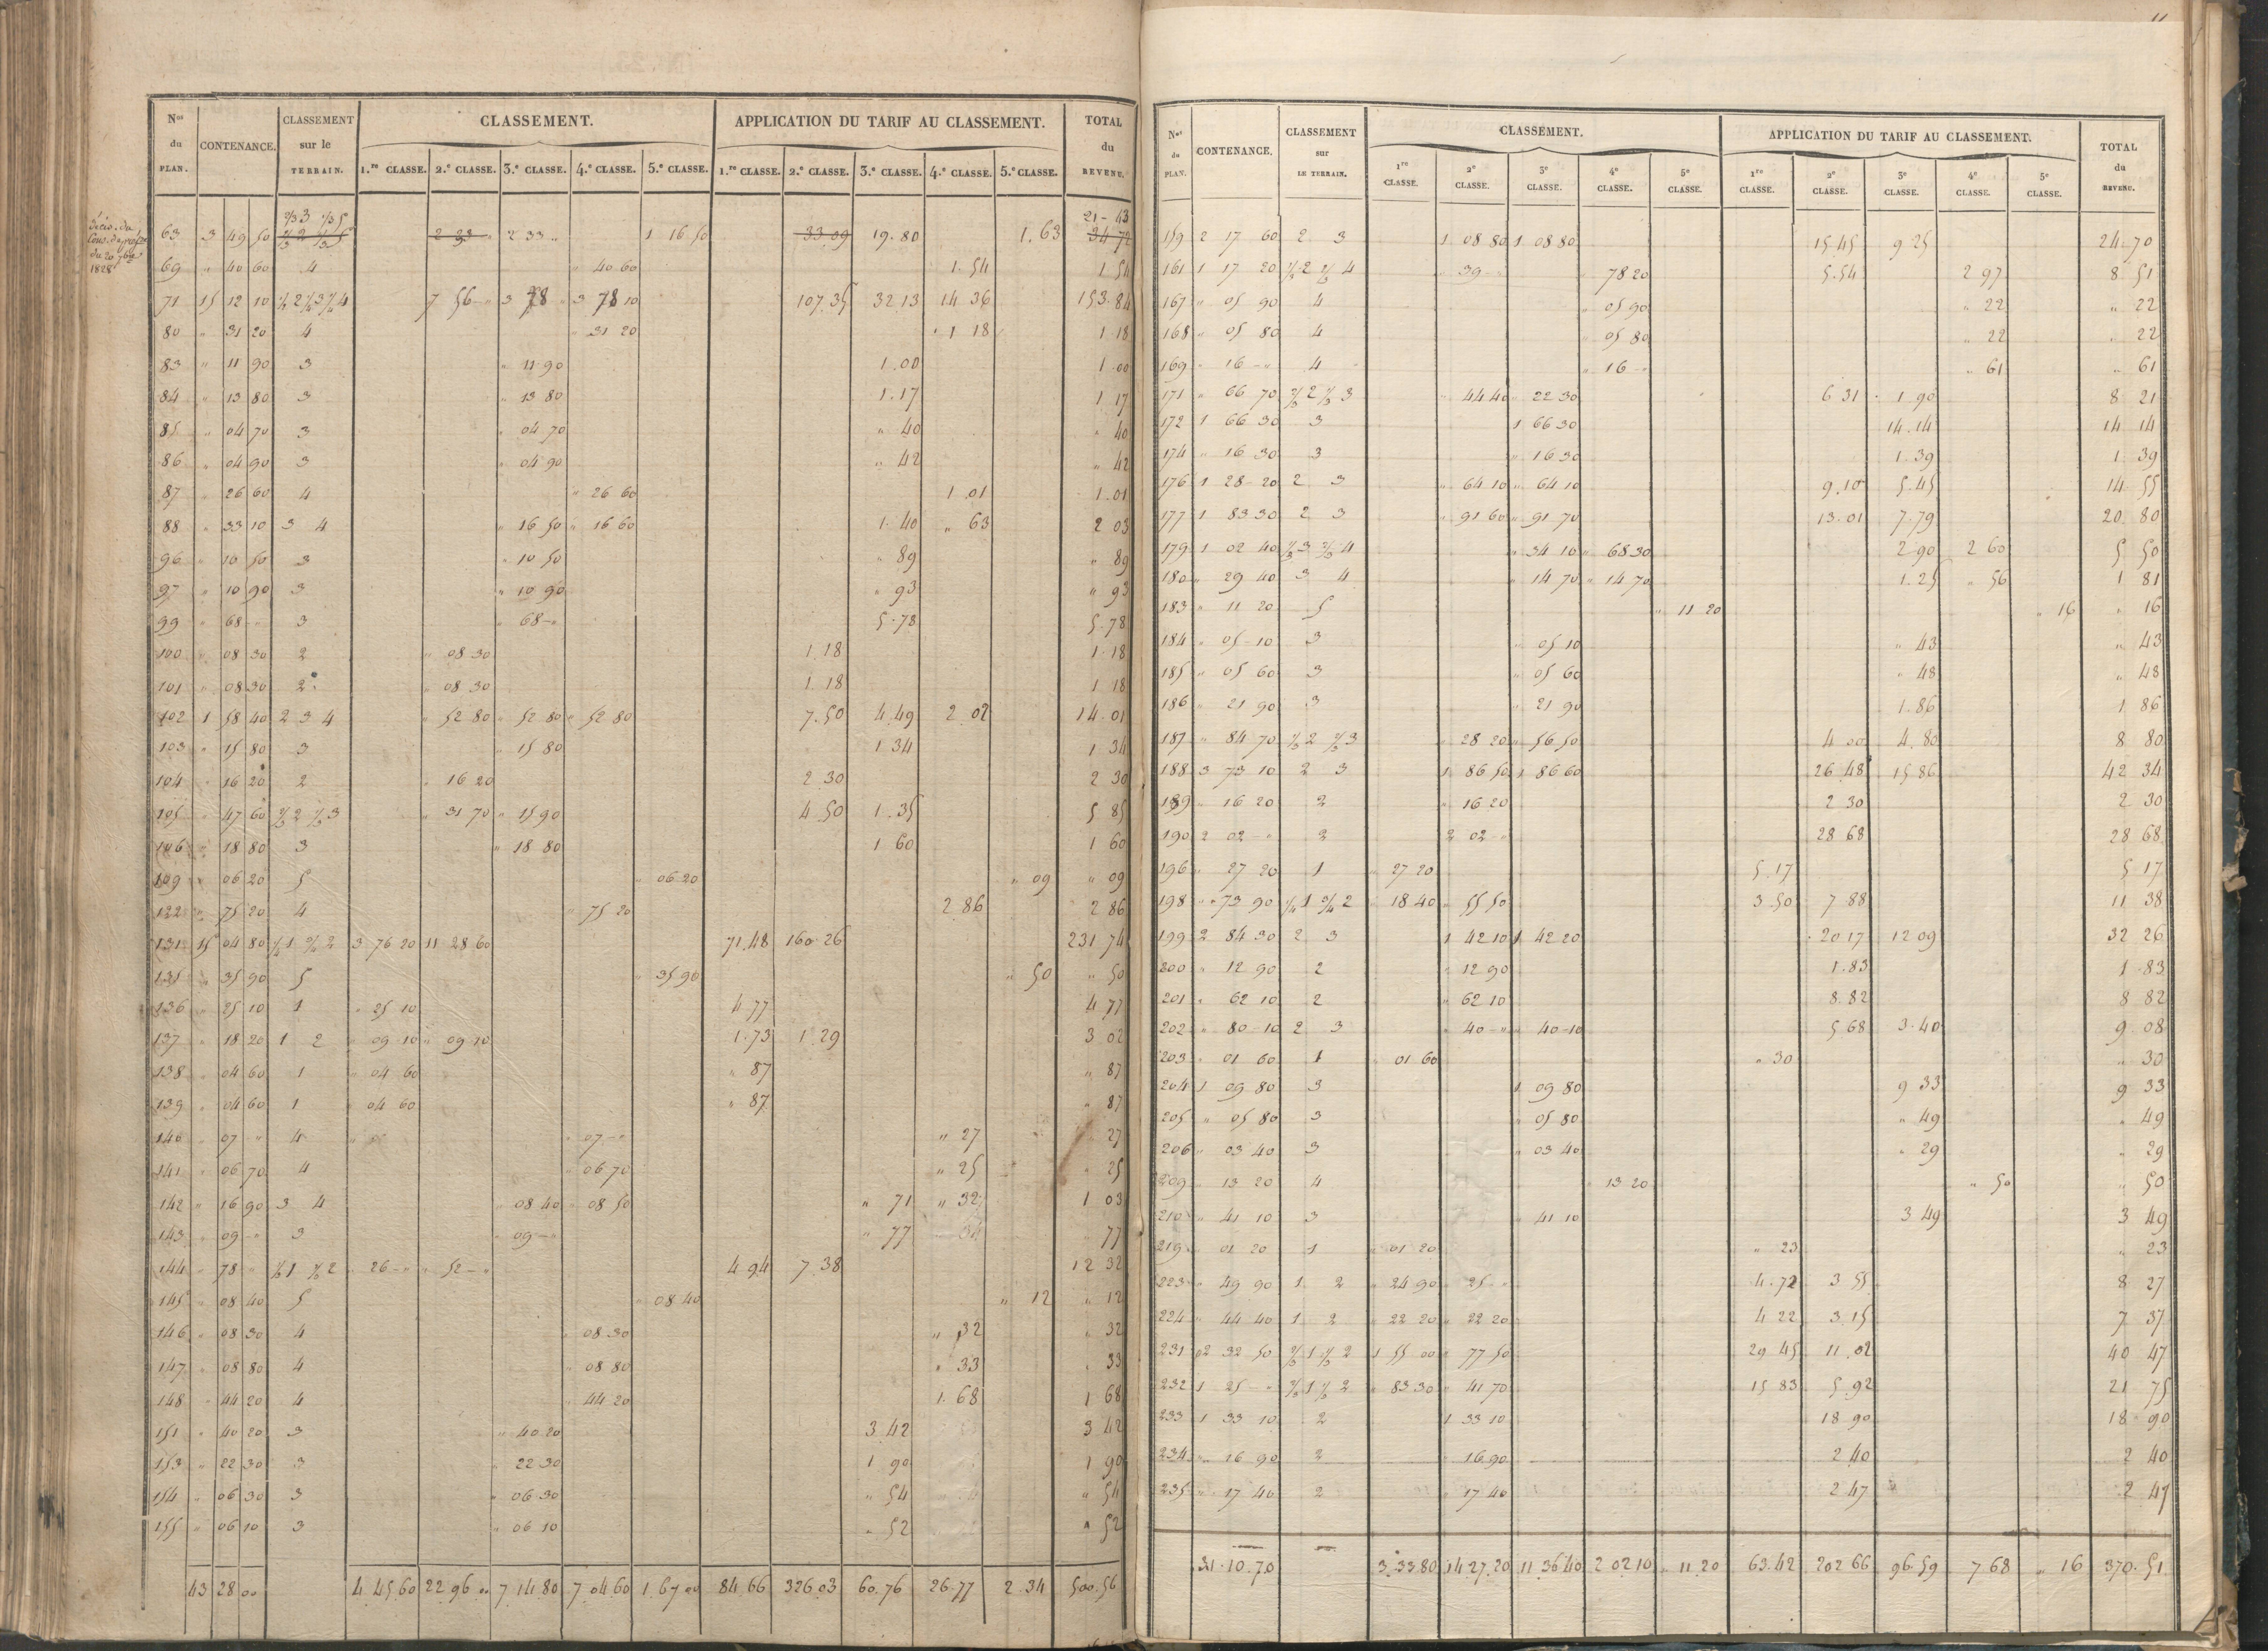 Nos du PLAN. CONTENANCE. CLASSEMENT sur le TERRAIN. CLASSEMENT. APPLICATION DU TARIF AU CLASSEMENT. TOTAL du REVENU.
1.re CLASSE. 2.e CLASSE. 3.e CLASSE. 4.e CLASSE. 5.e CLASSE. 1.re CLASSE. 2.e CLASSE. 3.e CLASSE. 4.e CLASSE. 5.e CLASSE.
2/3 3 1/3 5 21 - 43
63 3 49 50 2/3 2 1/3 5 2 33 " 2 33 " 1 16 50 33 09 19.80 1.63 34 72
69 " 40 60 4 " 40 60 1.54 1 54
71 15 12 10 1/2 2 1/4 3 1/4 4 7 56 " 3 78 " 3 78 10 107.35 32 13 14 36 153.84
80 " 31 20 4 " 31 20 1 18 1 18
83 " 11 90 3 " 11 90 1.00 1 00
84 " 13 80 3 " 13 80 1.17 1 17
85 " 04 70 3 " 04 70 " 40 " 40
86 " 04 90 3 " 04 90 " 42 " 42
87 " 26 60 4 " 26 60 1.01 1.01
88 " 33 10 3 4 " 16 50 " 16 60 1.40 " 63 2 03
96 " 10 50 3 " 10 50 " 89 " 89
97 " 10 90 3 " 10 90 " 93 " 93
99 " 68 " 3 " 68 " 5.78 5.78
100 " 08 30 2 " 08 30 1.18 1.18
101 " 08 30 2 " 08 30 1.18 1 18
102 1 58 40 2 3 4 " 52 80 " 52 80 " 52 80 7.50 4.49 2.02 14.01
103 " 15 80 3 " 15 80 1 34 1 34
104 " 16 20 2 " 16 20 2 30 2 30
105 " 47 60 2/3 2 1/3 3 " 31 70 " 15 90 4.50 1.35 5 85
106 " 18 80 3 " 18 80 1 60 1 60
109 " 06 20 5 " 06 20 " 09 " 09
122 " 75 20 4 " 75 20 2 86 2 86
131 15 04 80 1/4 1 3/4 2 3 76 20 11 28 60 71.48 160.26 231 74
135 " 35 90 5 " 35 90 " 50 " 50
136 " 25 10 1 " 25 10 4 77 4 77
137 " 18 20 1 2 " 09 10 " 09 10 1.73 1.29 3 02
138 " 04 60 1 " 04 60 " 87 " 87
139 " 04 60 1 " 04 60 " 87 " 87
140 " 07 " 4 " 07 " " 27 " 27
141 " 06 70 4 " 06 70 " 25 " 25
142 " 16 90 3 4 " 08 40 " 08 50 " 71 " 32 1 03
143 " 09 " 3 " 09 " " 77 " 77
144 " 78 " 1/3 1 2/3 2 " 26 " " 52 " 4 94 7.38 12 32
145 " 08 40 5 " 08 40 " 12 " 12
146 " 08 30 4 " 08 30 " 32 " 32
147 " 08 80 4 " 08 80 " 33 " 33
148 " 44 20 4 " 44 20 1.68 1 68
151 " 40 20 3 " 40 20 3 42 3 42
153 " 22 30 3 " 22 30 1 90 1 90
154 " 06 30 3 " 06 30 " 54 " 54
155 " 06 10 3 " 06 10 " 52 " 52
43 28 00 4 45 60 22 96 00 7 14 80 7 04 60 1 67 00 84 66 326 03 60.76 26.77 2.34 500.56
11
Nos du PLAN. CONTENANCE. CLASSEMENT sur LE TERRAIN. CLASSEMENT. APPLICATION DU TARIF AU CLASSEMENT. TOTAL du REVENU.
1re CLASSE. 2e CLASSE. 3e CLASSE. 4e CLASSE. 5e CLASSE. 1re CLASSE. 2e CLASSE. 3e CLASSE. 4e CLASSE. 5e CLASSE.
159 2 17 60 2 3 1 08 80 1 08 80 15.45 9 25 24.70
161 1 17 20 1/3 2 2/3 4 " 39 " " 78 20 5.54 2 97 8 51
167 " 05 90 4 " 05 90 " 22 " 22
168 " 05 80 4 " 05 80 " 22 " 22
169 " 16 " 4 " 16 " " 61 " 61
171 " 66 70 2/3 2 1/3 3 " 44 40 " 22 30 6 31 1 90 8 21
172 1 66 30 3 1 66 30 14.14 14 14
174 " 16 30 3 " 16 30 1.39 1 39
176 1 28 20 2 3 " 64 10 " 64 10 9.10 5.45 14 55
177 1 83 30 2 3 " 91 60 " 91 70 13.01 7.79 20 80
179 1 02 40 1/3 3 2/3 4 " 34 10 " 68 30 2 90 2 60 5 50
180 " 29 40 3 4 " 14 70 " 14 70 1.25 " 56 1 81
183 " 11 20 5 " 11 20 " 16 " 16
184 " 05 10 3 " 05 10 " 43 " 43
185 " 05 60 3 " 05 60 " 48 " 48
186 " 21 90 3 " 21 90 1.86 1 86
187 " 84 70 1/3 2 2/3 3 " 28 20 " 56 50 4 00 4.80 8 80
188 3 73 10 2 3 1 86 50 1 86 60 26.48 15 86 42 34
189 " 16 20 2 " 16 20 2 30 2 30
190 2 02 " 2 2 02 " 28 68 28 68
196 " 27 20 1 " 27 20 5.17 5 17
198 " 73 90 1/4 1 3/4 2 " 18 40 " 55 50 3.50 7 88 11 38
199 2 84 30 2 3 1 42 10 1 42 20 20 17 12 09 32 26
200 " 12 90 2 " 12 90 1.83 1 83
201 " 62 10 2 " 62 10 8.82 8 82
202 " 80 10 2 3 " 40 " " 40 10 5 68 3.40 9 08
203 " 01 60 1 " 01 60 " 30 " 30
204 1 09 80 3 1 09 80 9 33 9 33
205 " 05 80 3 " 05 80 " 49 " 49
206 " 03 40 3 " 03 40 " 29 " 29
209 " 13 20 4 " 13 20 " 50 " 50
210 " 41 10 3 " 41 10 3 49 3 49
219 " 01 20 1 " 01 20 " 23 " 23
223 " 49 90 1 2 " 24 90 " 25 " 4.72 3 55 8 27
224 " 44 40 1 2 " 22 20 " 22 20 4 22 3.15 7 37
231 02 32 50 2/3 1 1/3 2 1 55 00 " 77 50 29 45 11.02 40 47
232 1 25 " 2/3 1 1/3 2 " 83 30 " 41 70 15 83 5.92 21 75
233 1 33 10 2 1 33 10 18 90 18 90
234 " 16 90 2 " 16 90 2 40 2 40
235 " 17 40 2 " 17 40 2 47 2 47
31.10.70 3.33.80 14.27.20 11.36.40 2 02 10 " 11.20 63.42 202 66 96.59 7 68 " 16 370.51